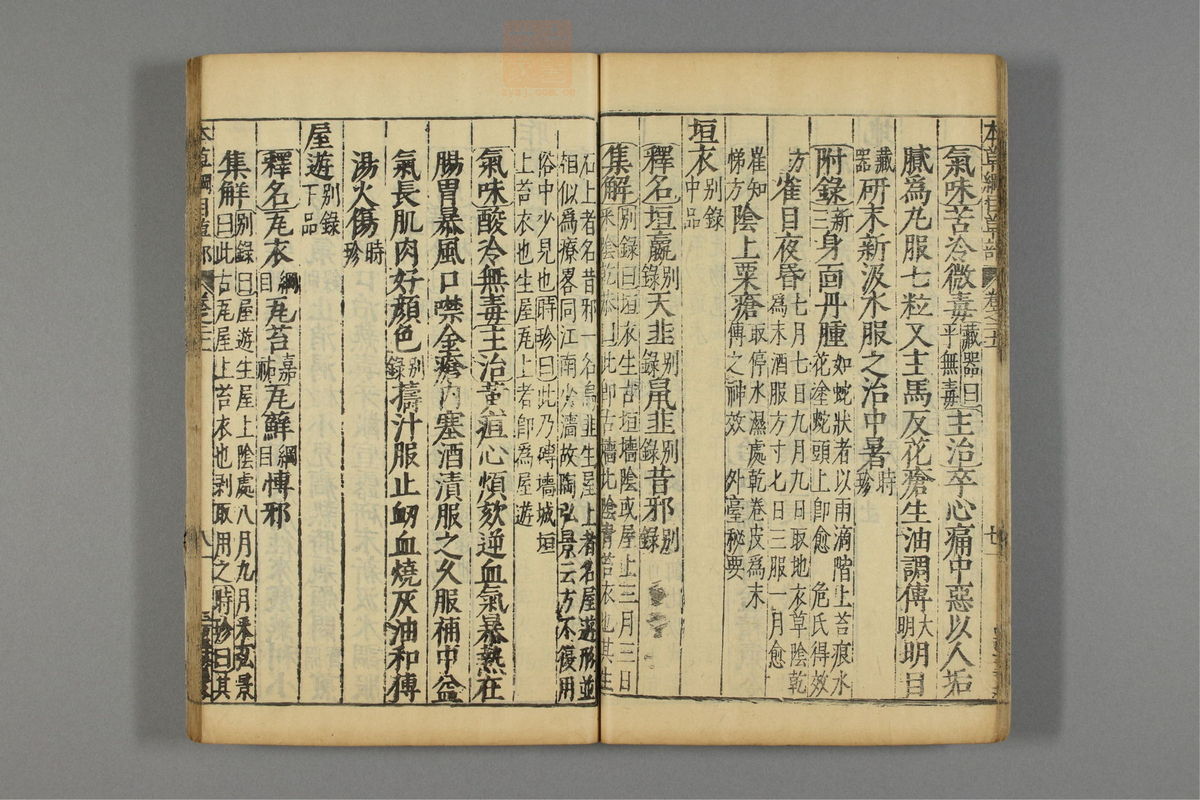 氣味苦冷微毒藏器曰平無毒主治卒心痛中惡以人垢
膩爲丸服七粒又主馬反花瘡生油調傅大明明目
藏器研末新汲水服之治中暑時珍
附錄新三身面丹腫如蛇狀者以雨滴階上苔痕水花塗蛇頭上卽愈 危氏得效
方雀目夜昏七月七日九月九日取地衣草陰乾爲末酒服方寸七日三服一月愈
崔知悌方陰上粟瘡取停水濕處乾卷皮爲末傅之神效 外臺秘要
垣衣別錄中品
釋名垣嬴別錄天韭別錄鼠韭別錄昔邪別錄
集解別錄曰垣衣生古垣墻陰或屋上三月三日采陰乾恭曰此卽古墻北陰青苔衣也其生
石上者名昔邪一名烏韭生屋上者名屋遊形並相似爲療畧同江南少墻故陶弘景云方不復用
俗中少見也時珍曰此乃磚墻城垣上苔衣也生屋瓦上者卽爲屋遊
氣味酸冷無毒主治黃疸心煩欬逆血氣暴熱在
腸胃暴風口噤金瘡內塞酒漬服之久服補中益
氣長肌肉好顏色別錄擣汁服止衄血燒灰油和傅
湯火傷時珍
屋遊別錄下品
釋名瓦衣綱目瓦苔嘉祐瓦蘚綱目博邪
集解別錄曰屋遊生屋上陰處八月九月采弘景曰此古瓦屋上苔衣也剥取用之時珍曰其
本草綱目草部 卷之二十